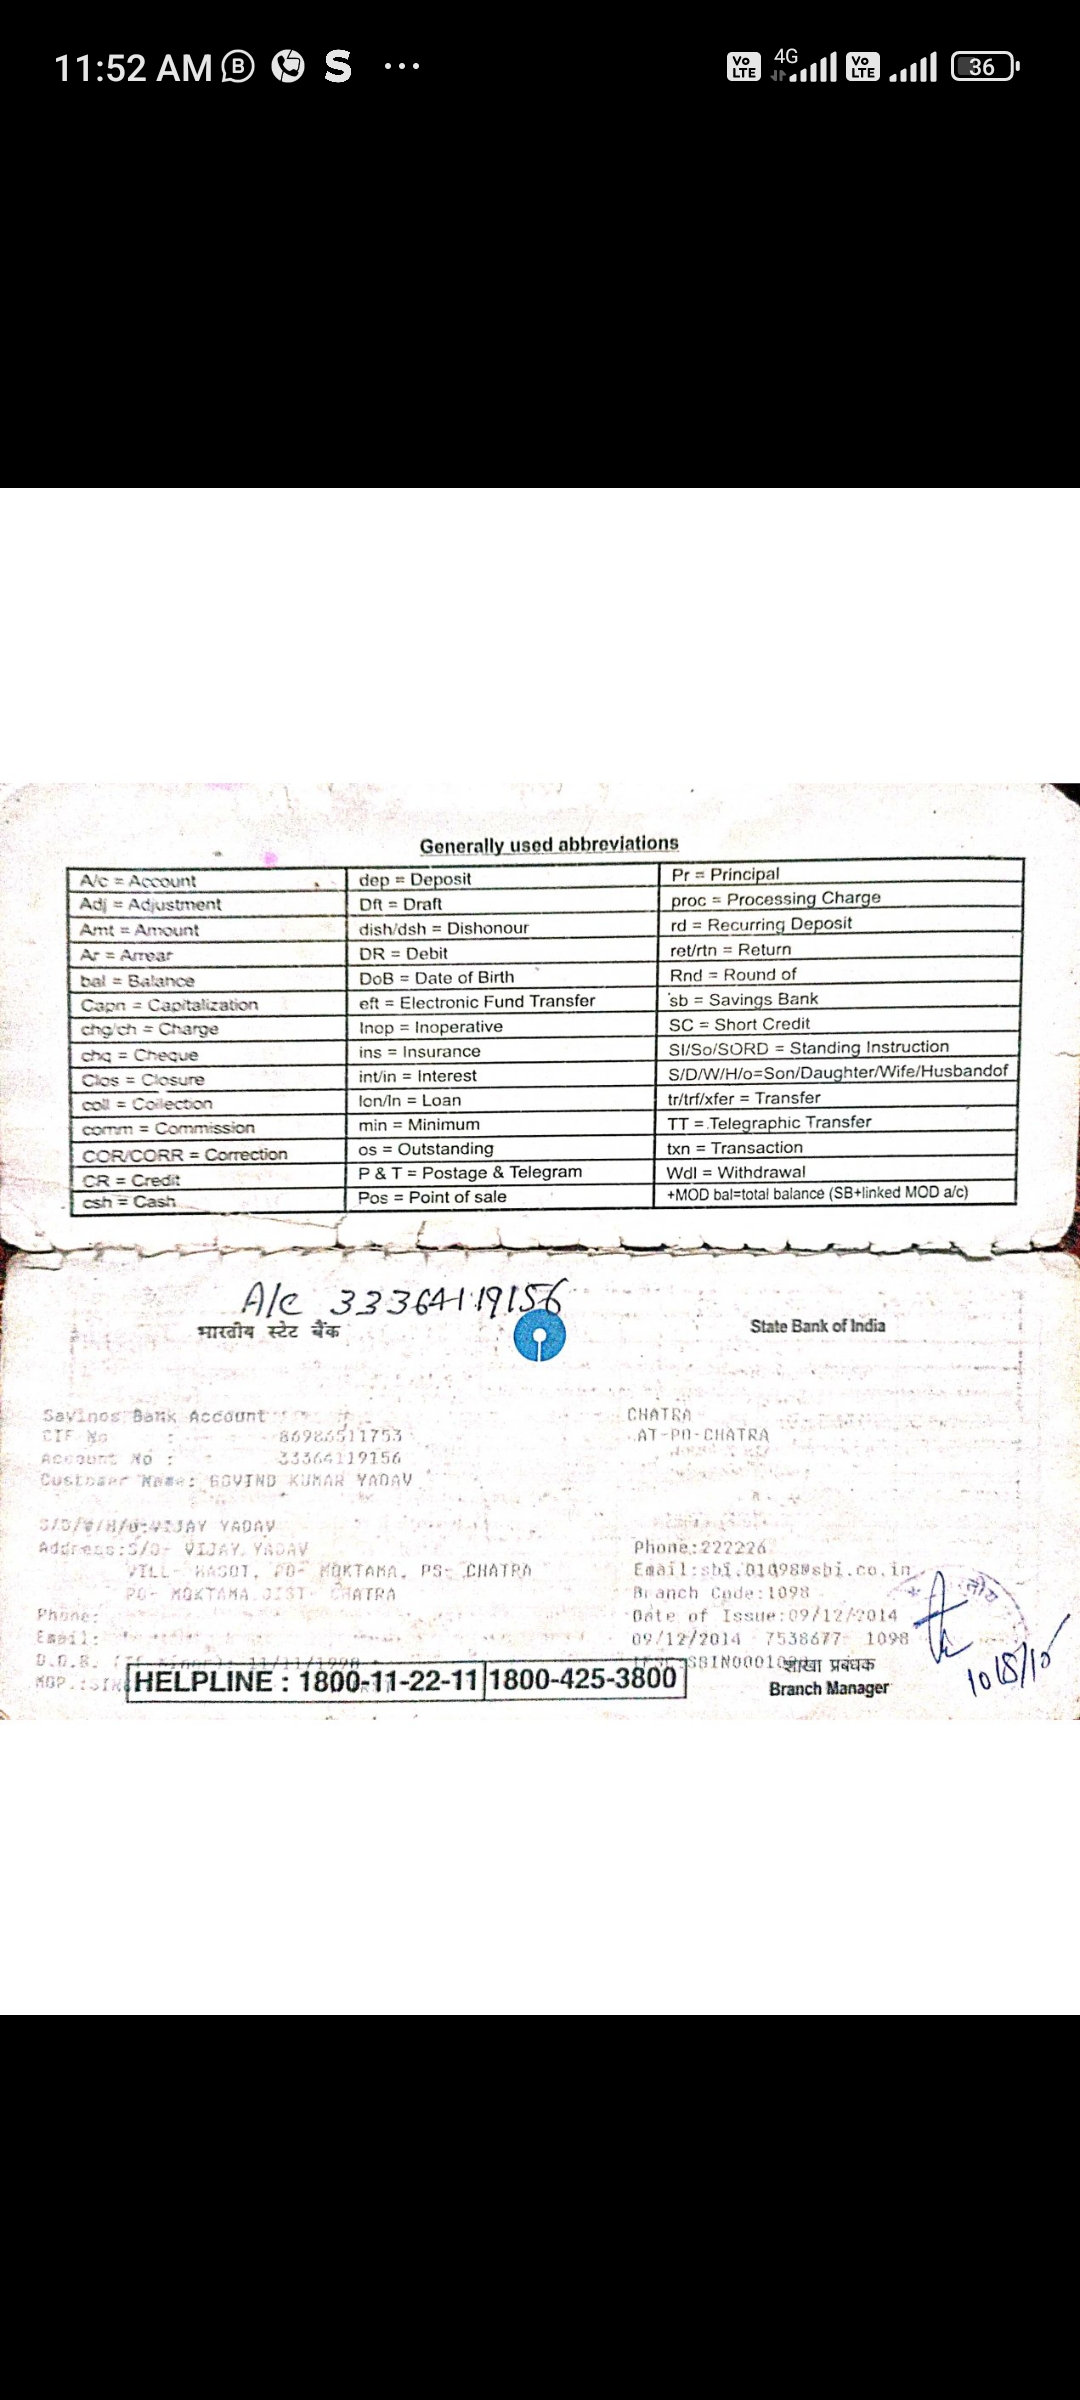 11:52 AM
4G
Vo LTE
Vo LTE
36
Generally used abbreviations
A/c = Account
Adj = Adjustment
Amt = Amount
Ar = Arrear
bal = Balance
Capn = Capitalization
chg/ch = Charge
chq = Cheque
Clos = Closure
coll = Collection
comm = Commission
COR/CORR = Correction
CR = Credit
csh = Cash
dep = Deposit
Dft = Draft
dish/dsh = Dishonour
DR = Debit
DoB = Date of Birth
eft = Electronic Fund Transfer
Inop = Inoperative
ins = Insurance
int/in = Interest
lon/ln = Loan
min = Minimum
os = Outstanding
P & T = Postage & Telegram
Pos = Point of sale
Pr = Principal
proc = Processing Charge
rd = Recurring Deposit
ret/rtn = Return
Rnd = Round of
sb = Savings Bank
SC = Short Credit
SI/So/SORD = Standing Instruction
S/D/W/H/o=Son/Daughter/Wife/Husbandof
tr/trf/xfer = Transfer
TT = Telegraphic Transfer
txn = Transaction
Wdl = Withdrawal
+MOD bal=total balance (SB+linked MOD a/c)
A/c 33364119156
भारतीय स्टेट बैंक
State Bank of India
Savings Bank Account
CIF No : 86986511753
Account No : 33364119156
Customer Name: GOVIND KUMAR YADAV
S/D/W/H/o:VIJAY YADAV
Address:S/O- VIJAY YADAV
VILL- PO- MOKTAMA, PS- CHATRA
PO- MOKTAMA DIST- CHATRA
Phone:
Email:
D.O.B. 11/11/1998
MOP.:
HELPLINE : 1800-11-22-11 1800-425-3800
CHATRA
AT-PO-CHATRA
Phone:222226
Email:sbi.01098@sbi.co.in
Branch Code:1098
Date of Issue:09/12/2014
09/12/2014 7538677 1098
शाखा प्रबंधक
Branch Manager